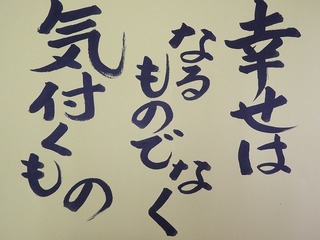 幸せは
なる
ものでなく
気付くもの